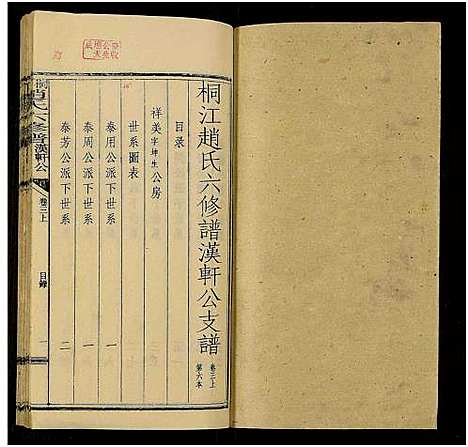 桐江趙氏六修譜漢軒公支譜 卷三上 第六本
目录
祥美字坤生公房
世系圖表
泰用公派下世系 一
泰周公派下世系 一
泰芳公派下世系 二
趙氏六修譜漢軒公 卷三上 目錄 一